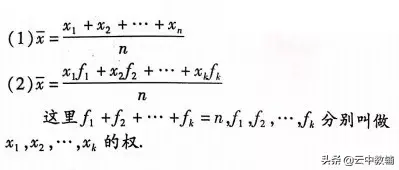 (1) x̄ = (x₁ + x₂ + ⋯ + xₙ) / n
(2) x̄ = (x₁f₁ + x₂f₂ + ⋯ + xₖfₖ) / n
这里 f₁ + f₂ + ⋯ + fₖ = n, f₁, f₂, ⋯, fₖ 分别叫做
x₁, x₂, ⋯, xₖ 的权.
头条@云中教辅